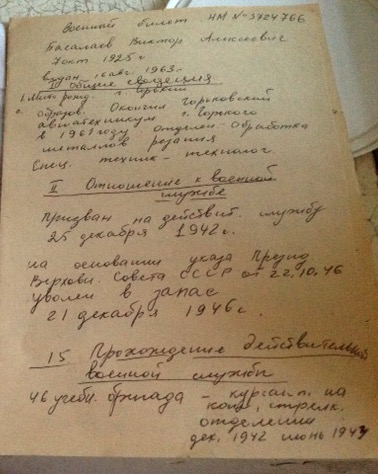 Военный билет НМ № 3724766
Басалаев Виктор Алексеевич
7 окт 1925 г
выдан 16 авг. 1963 г.
II Общие сведения
1. Место рожд. г. Горький
Образов. Окончил Горьковский
авиатехникум г. Горького
в 1961 году отделен - Обработка
металлов резания
Спец. техник - технолог.
II Отношение к военной
службе
Призван на действит. службу
25 декабря 1942 г.
на основании указа Презид
Верховн. Совета СССР от 22.10.46
уволен в запас
21 декабря 1946 г.
15 Прохождение действительной
военной службы
46 учебн. бригада - курсант на
стрелк.
отделения
дек. 1942 июнь 1943